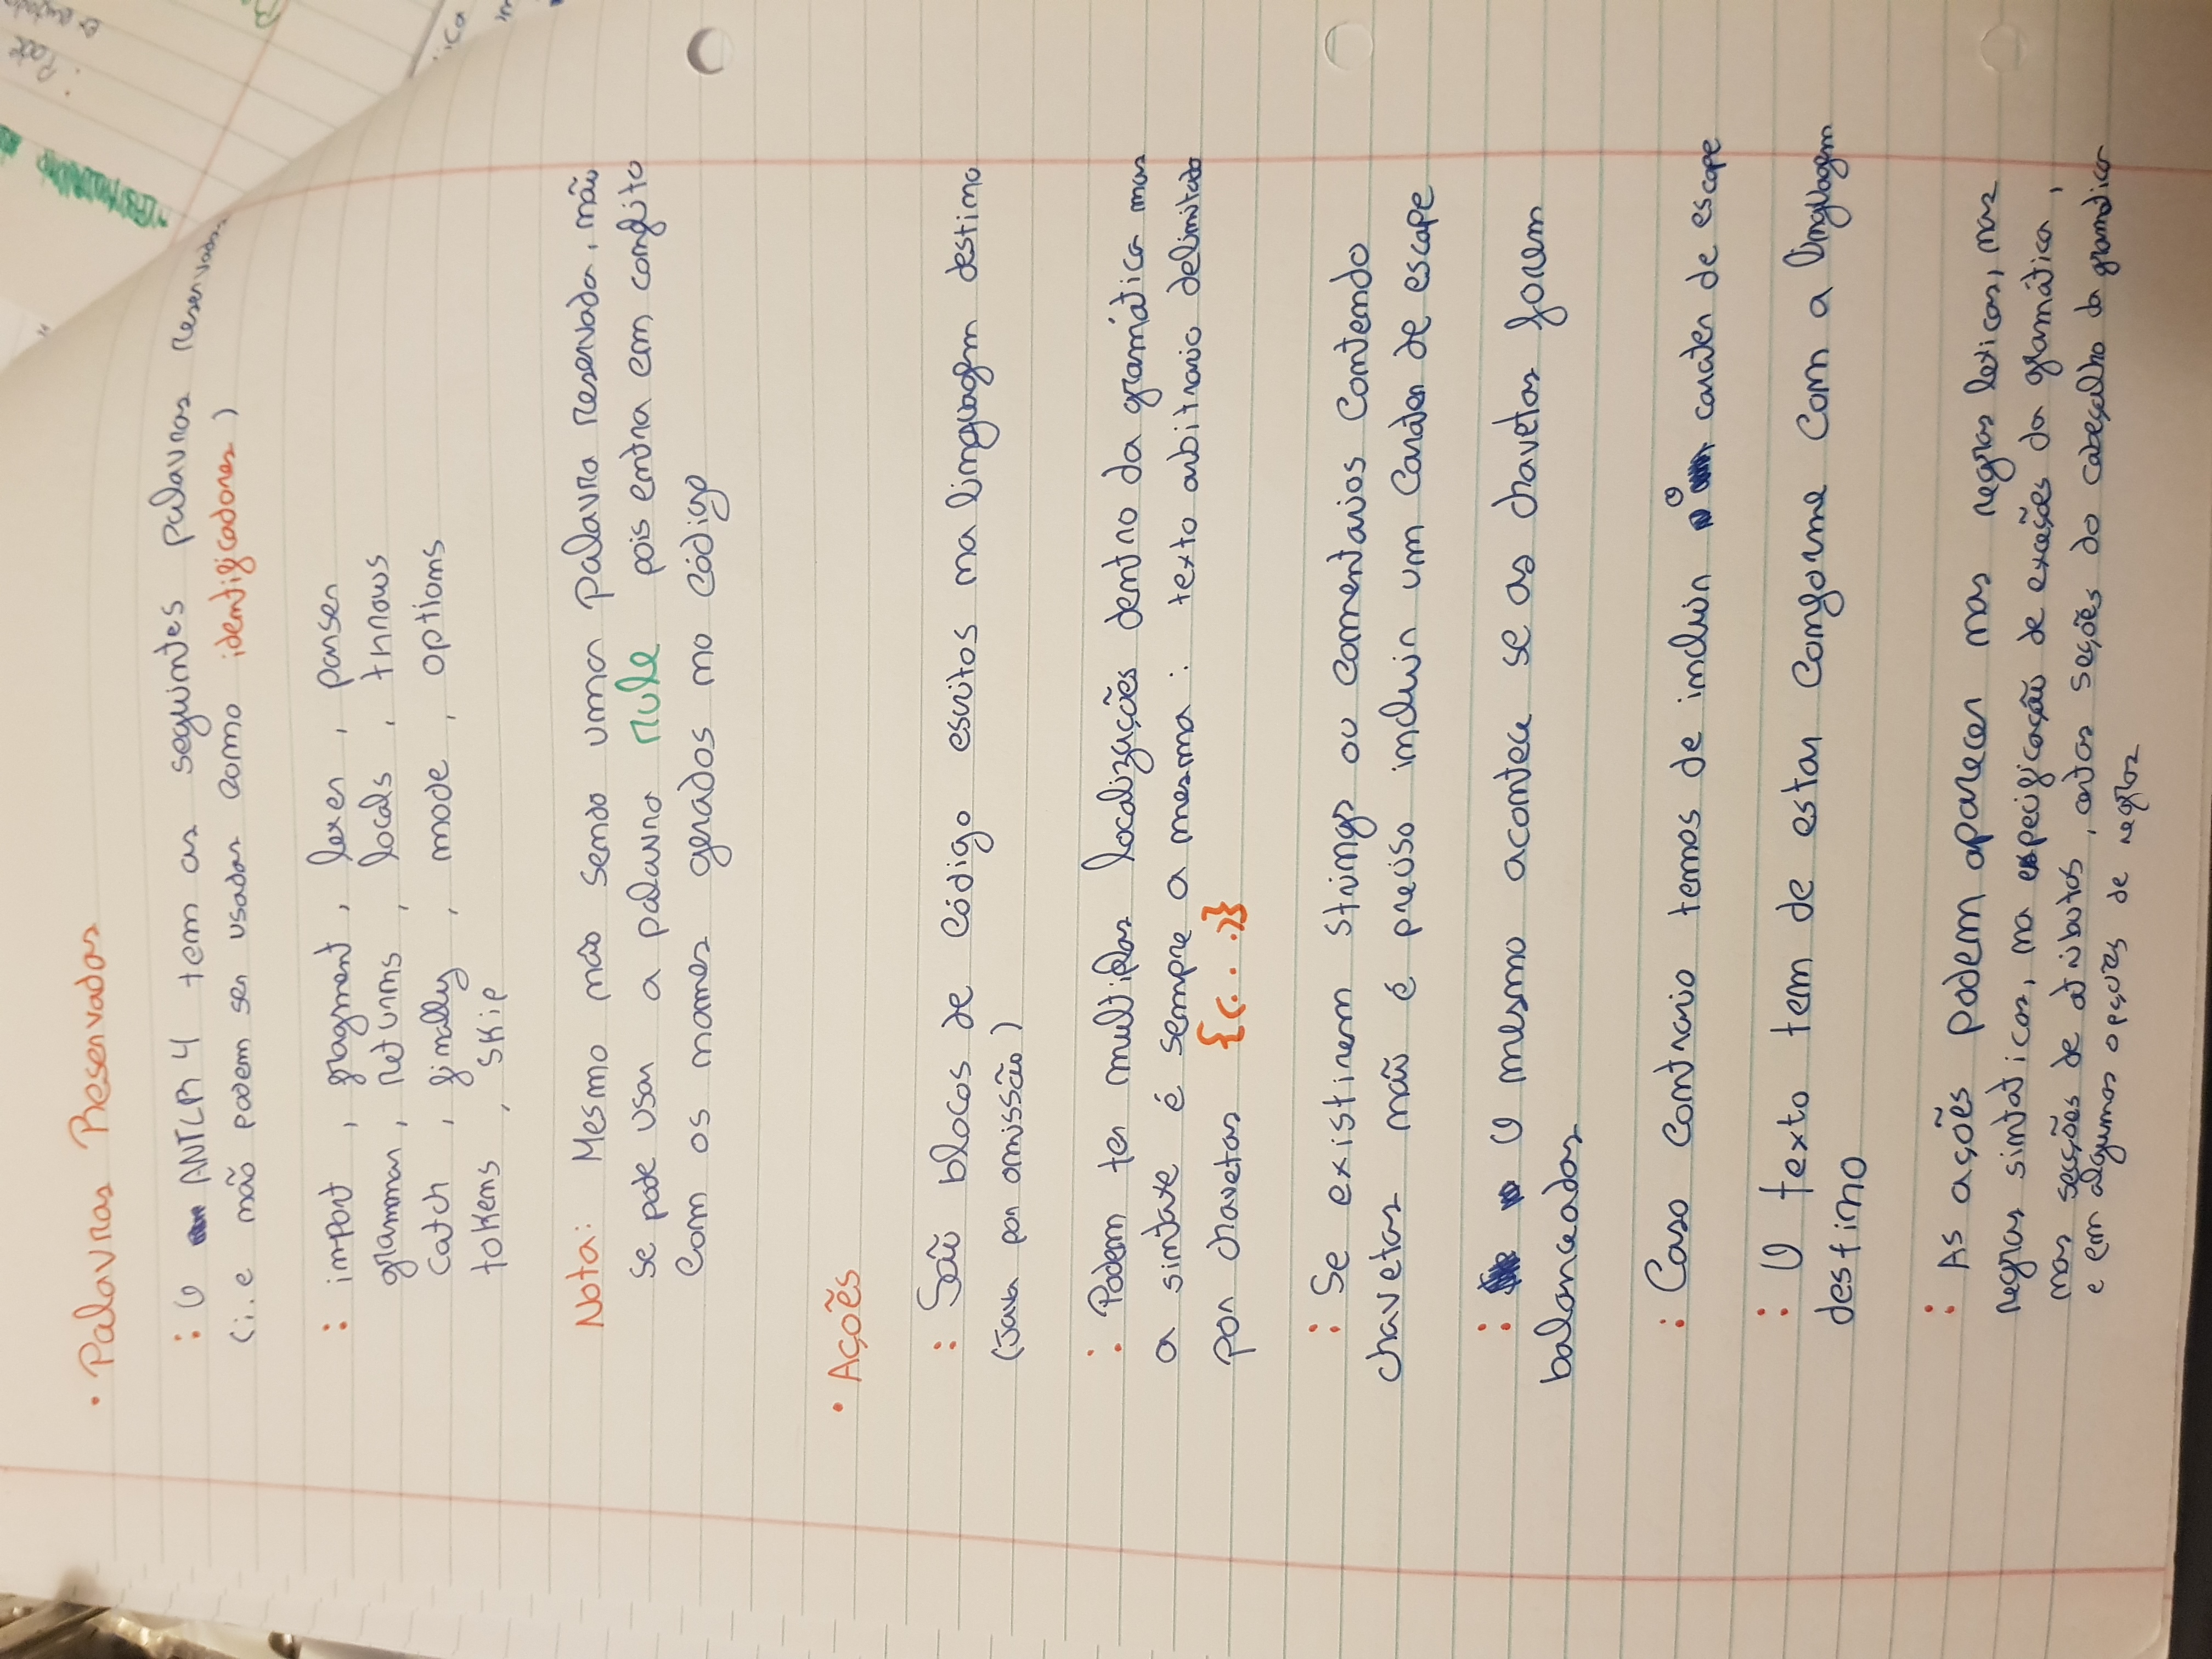 • Palavras Reservadas
: O ANTLR 4 tem as seguintes palavras reservadas
(i.e não podem ser usadas como identificadores)
: import , fragment , lexer , parser
grammar , returns , locals , throws
catch , finally , mode , options
tokens , skip
Nota: Mesmo não sendo uma palavra reservada, não
se pode usar a palavra rule pois entra em conflito
com os nomes gerados no código
• Açoẽs
: São blocos de código escritos na linguagem destino
(Java por omissão)
: Podem ter multiplas localizações dentro da gramática mas
a sintaxe é sempre a mesma : texto arbitrario delimitado
por chavetas {(...)}
: Se existirem strings ou comentarios contendo
chavetas não é preciso incluir um caráter de escape
: O mesmo acontece se as chavetas forem
balanceadas
: Caso contrario temos de incluir o carater de escape
: O texto tem de estar conforme com a linguagem
destino
: As ações podem aparecer nas regras lexicas, nas
regras sintaticas, na especificação de exceções da gramática,
nas secções de atributos, certas seções do cabeçalho da gramatica
e em algumas opções de regras
: Pode